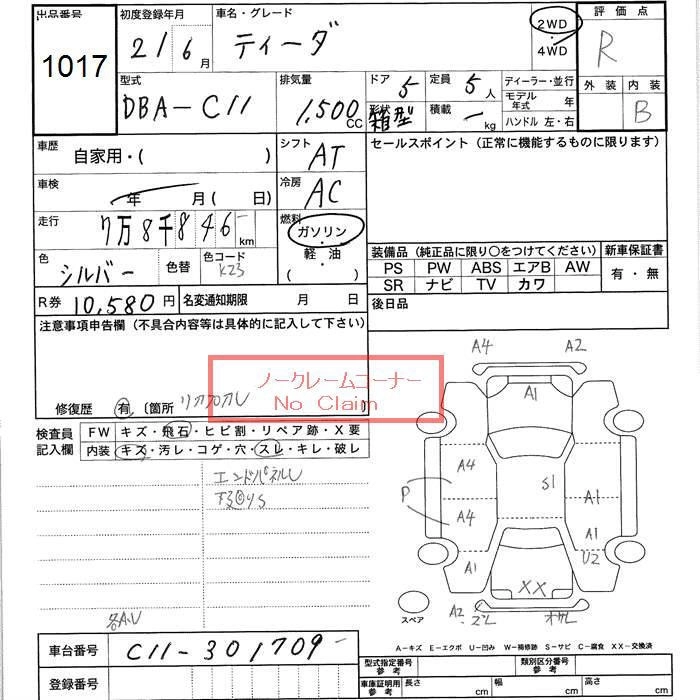 出品番号 初度登録年月 車名・グレード 評価点
1017
21年 6月 ティーダ 2WD R
4WD
外装 内装
B
型式 排気量 ドア 5 定員 5人 ディーラー・並行
DBA-C11 1,500cc 形状 箱型 積載 - kg モデル年式 年
ハンドル 左・右
車歴 自家用・( ) シフト AT セールスポイント（正常に機能するものに限ります）
車検 年 月( 日) 冷房 AC
走行 7万8千846 km 燃料 ガソリン・
軽油
( )
色 シルバー 色替 色コード K23
装備品（純正品に限り〇をつけてください） 新車保証書
PS PW ABS エアB AW 有・無
SR ナビ TV カワ
R券 10,580円 名変通知期限 月 日 後日品
注意事項申告欄（不具合内容等は具体的に記入して下さい）
ノークレームコーナー
No Claim
修復歴 有 〔箇所
検査員 FW キズ・飛石・ヒビ割・リペア跡・X要
記入欄 内装 キズ・汚レ・コゲ・穴・スレ・キレ・破レ
エンドパネル
各A.U
A4 A2
A1
A4 S1
P A1
A4 A1
A1 U2
XX
スペア A2
A-キズ E-エクボ U-凹み W-補修跡 S-サビ C-腐食 XX-交換済
車台番号 C11-301709
登録番号
型式指定番号 参考 類別区分番号 参考
車庫証明用 参考 長さ cm 幅 cm 高さ cm